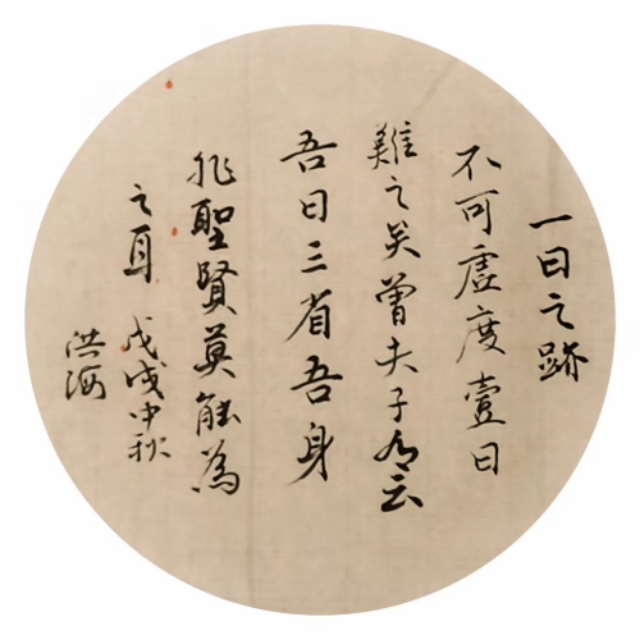 一日之跡
不可虛度壹日
難之矣曾夫子有云
吾日三省吾身
非聖賢莫能為
之耳 戊戌中秋
洪海